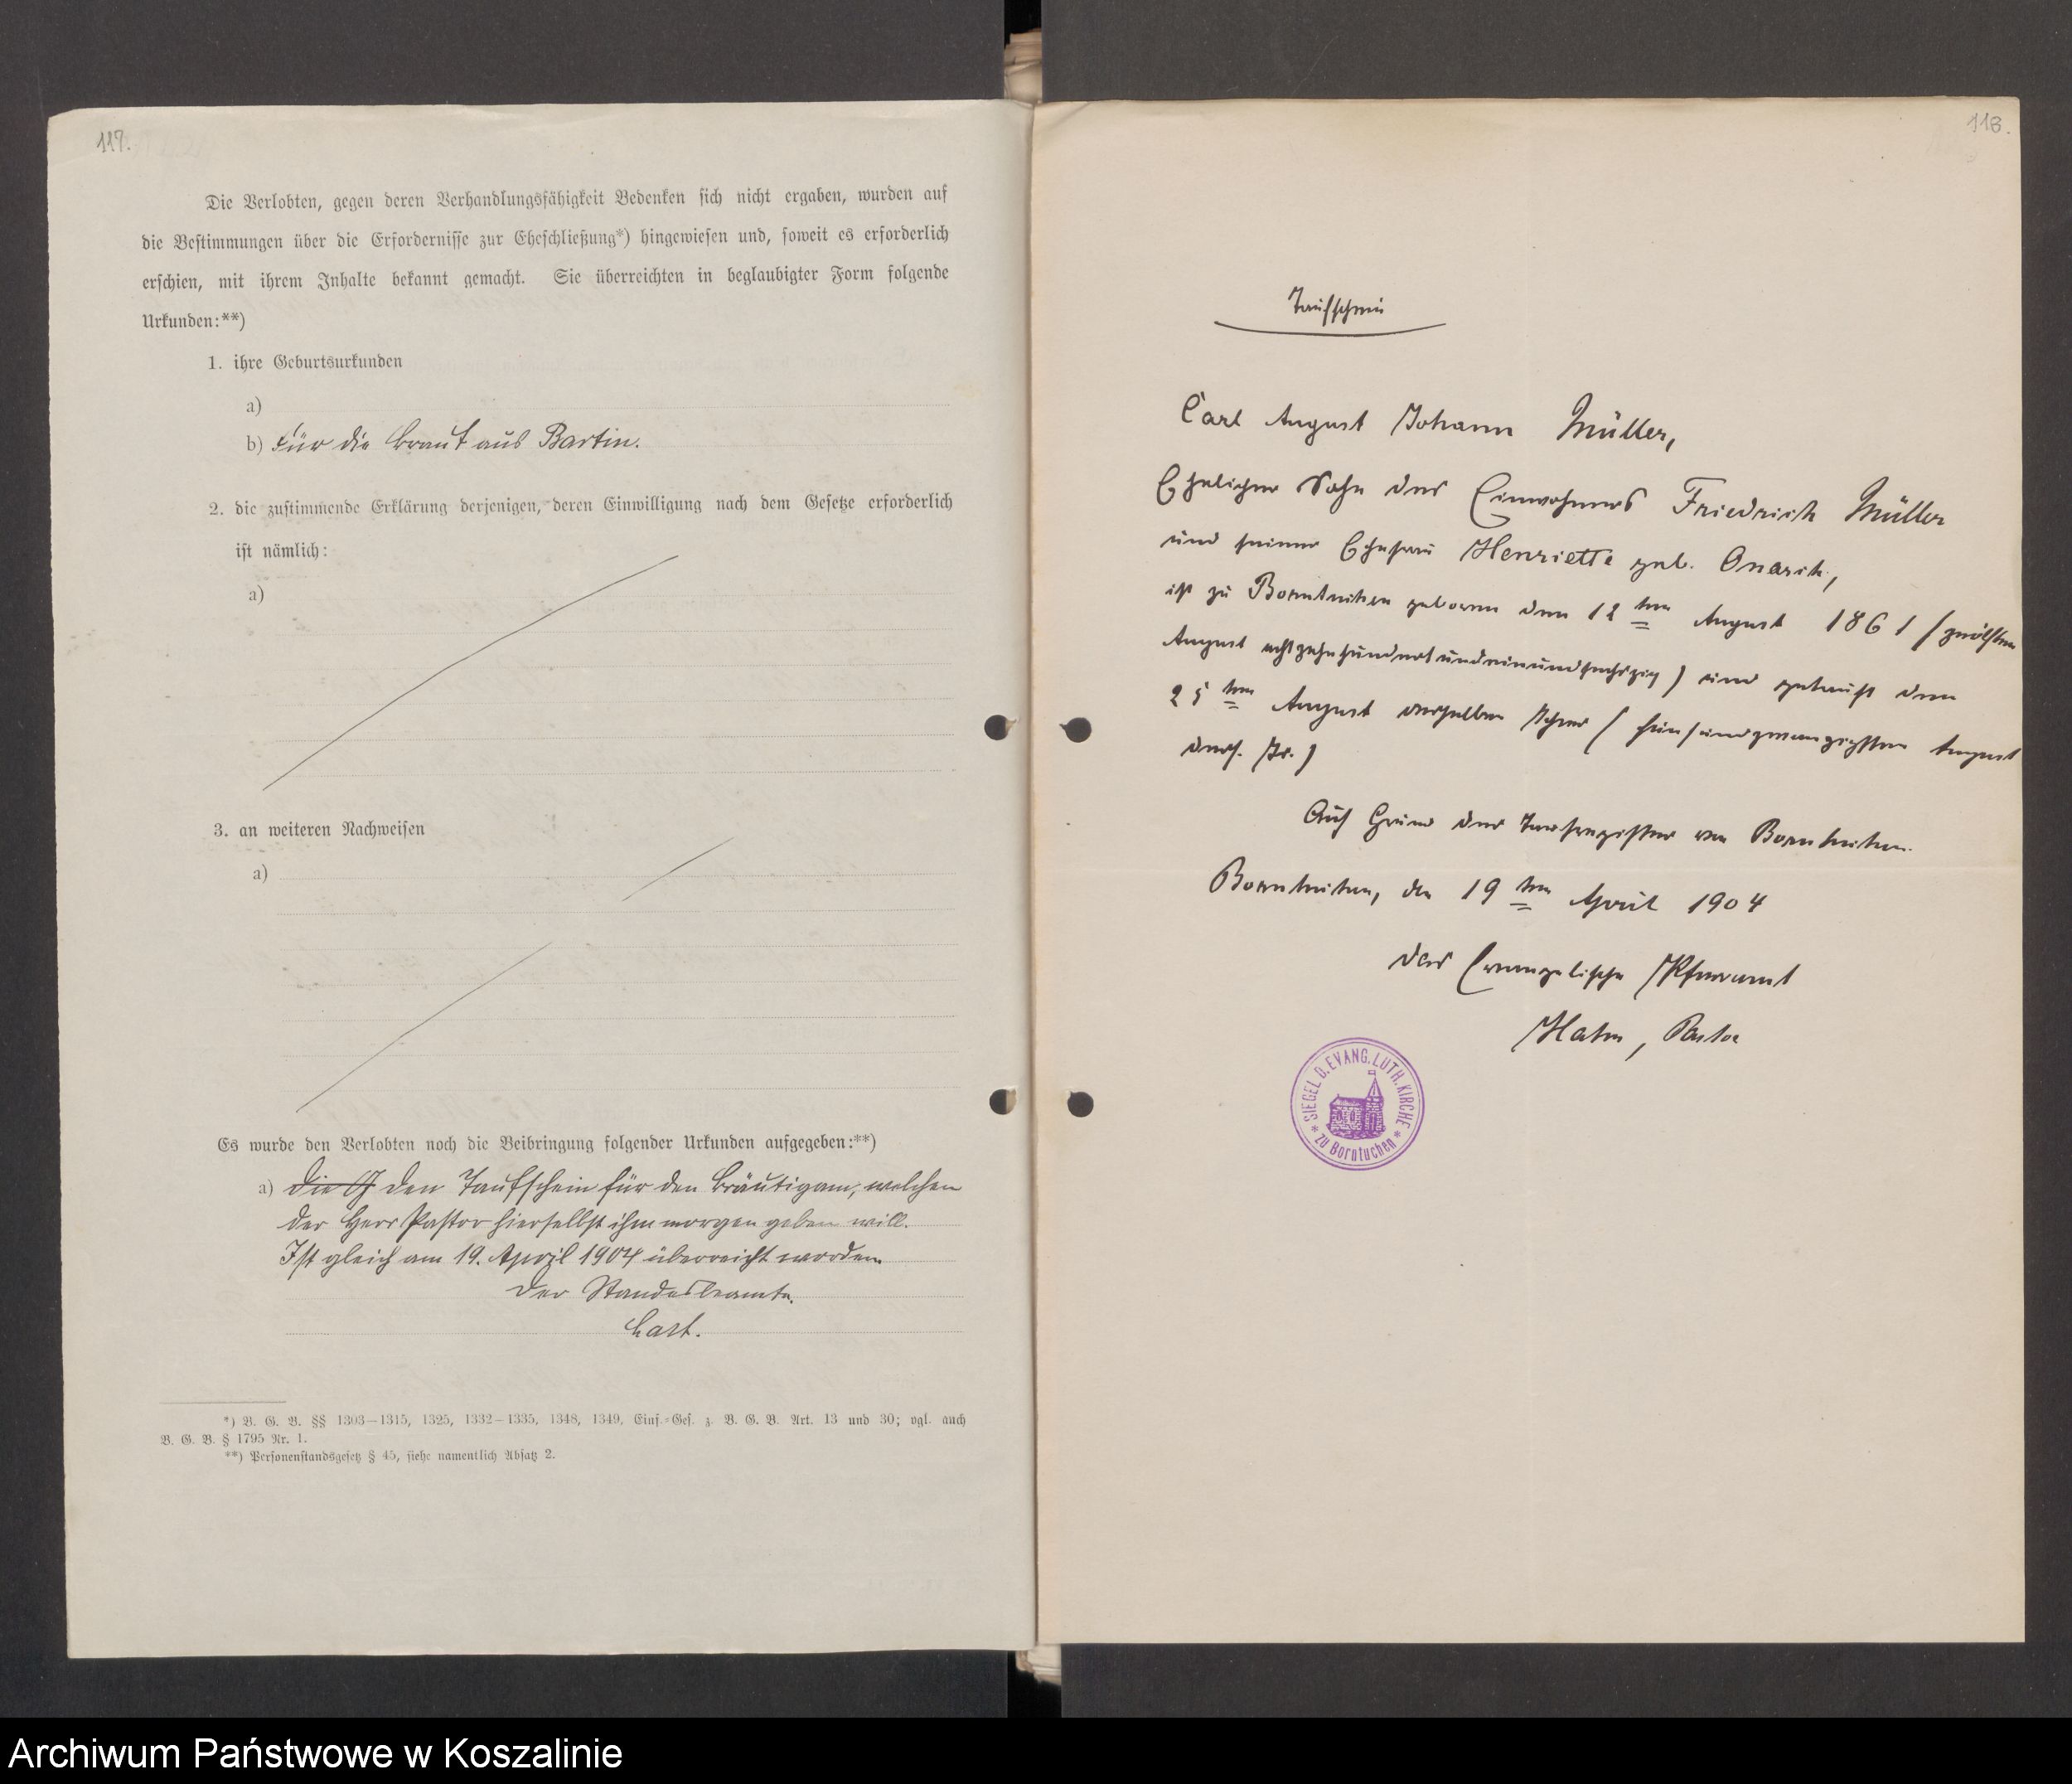 117.
Die Verlobten, gegen deren Verhandlungsfähigkeit Bedenken sich nicht ergaben, wurden auf
die Bestimmungen über die Erfordernisse zur Eheschließung*) hingewiesen und, soweit es erforderlich
erschien, mit ihrem Inhalte bekannt gemacht. Sie überreichten in beglaubigter Form folgende
Urkunden:**)
1. ihre Geburtsurkunden
a)
b) Für die Braut aus Bartin.
2. die zustimmende Erklärung derjenigen, deren Einwilligung nach dem Gesetze erforderlich
ist nämlich:
a)
3. an weiteren Nachweisen
a)
Es wurde den Verlobten noch die Beibringung folgender Urkunden aufgegeben:**)
a) die G den Taufschein für den Bräutigam, welchen
der Herr Pastor hierselbst ihm morgen geben will.
Ist gleich am 19. April 1904 überreicht worden.
Der Standesbeamte.
*) B. G. B. §§ 1303–1315, 1325, 1332–1335, 1348, 1349, Einf.-Ges. z. B. G. B. Art. 13 und 30; vgl. auch
B. G. B. § 1795 Nr. 1.
**) Personenstandsgesetz § 45, siehe namentlich Absatz 2.
118.
Taufschein
Carl August Johann Müller,
Ehelicher Sohn des Einwohners Friedrich Müller
und seiner Ehefrau Henriette geb.
ist zu Borntuchen geboren den 12ten August 1861 (zwölften
August achtzehnhundertundeinundsechszig) und getauft den
25ten August desselben Jahres (fünfundzwanzigsten August
dess. Js.)
Auf Grund des Taufregisters von Borntuchen.
Borntuchen, den 19ten April 1904
Das Evangelische Pfarramt
Pastor
SIEGEL D. EVANG. LUTH. KIRCHE
* ZU Borntuchen *
Archiwum Państwowe w Koszalinie